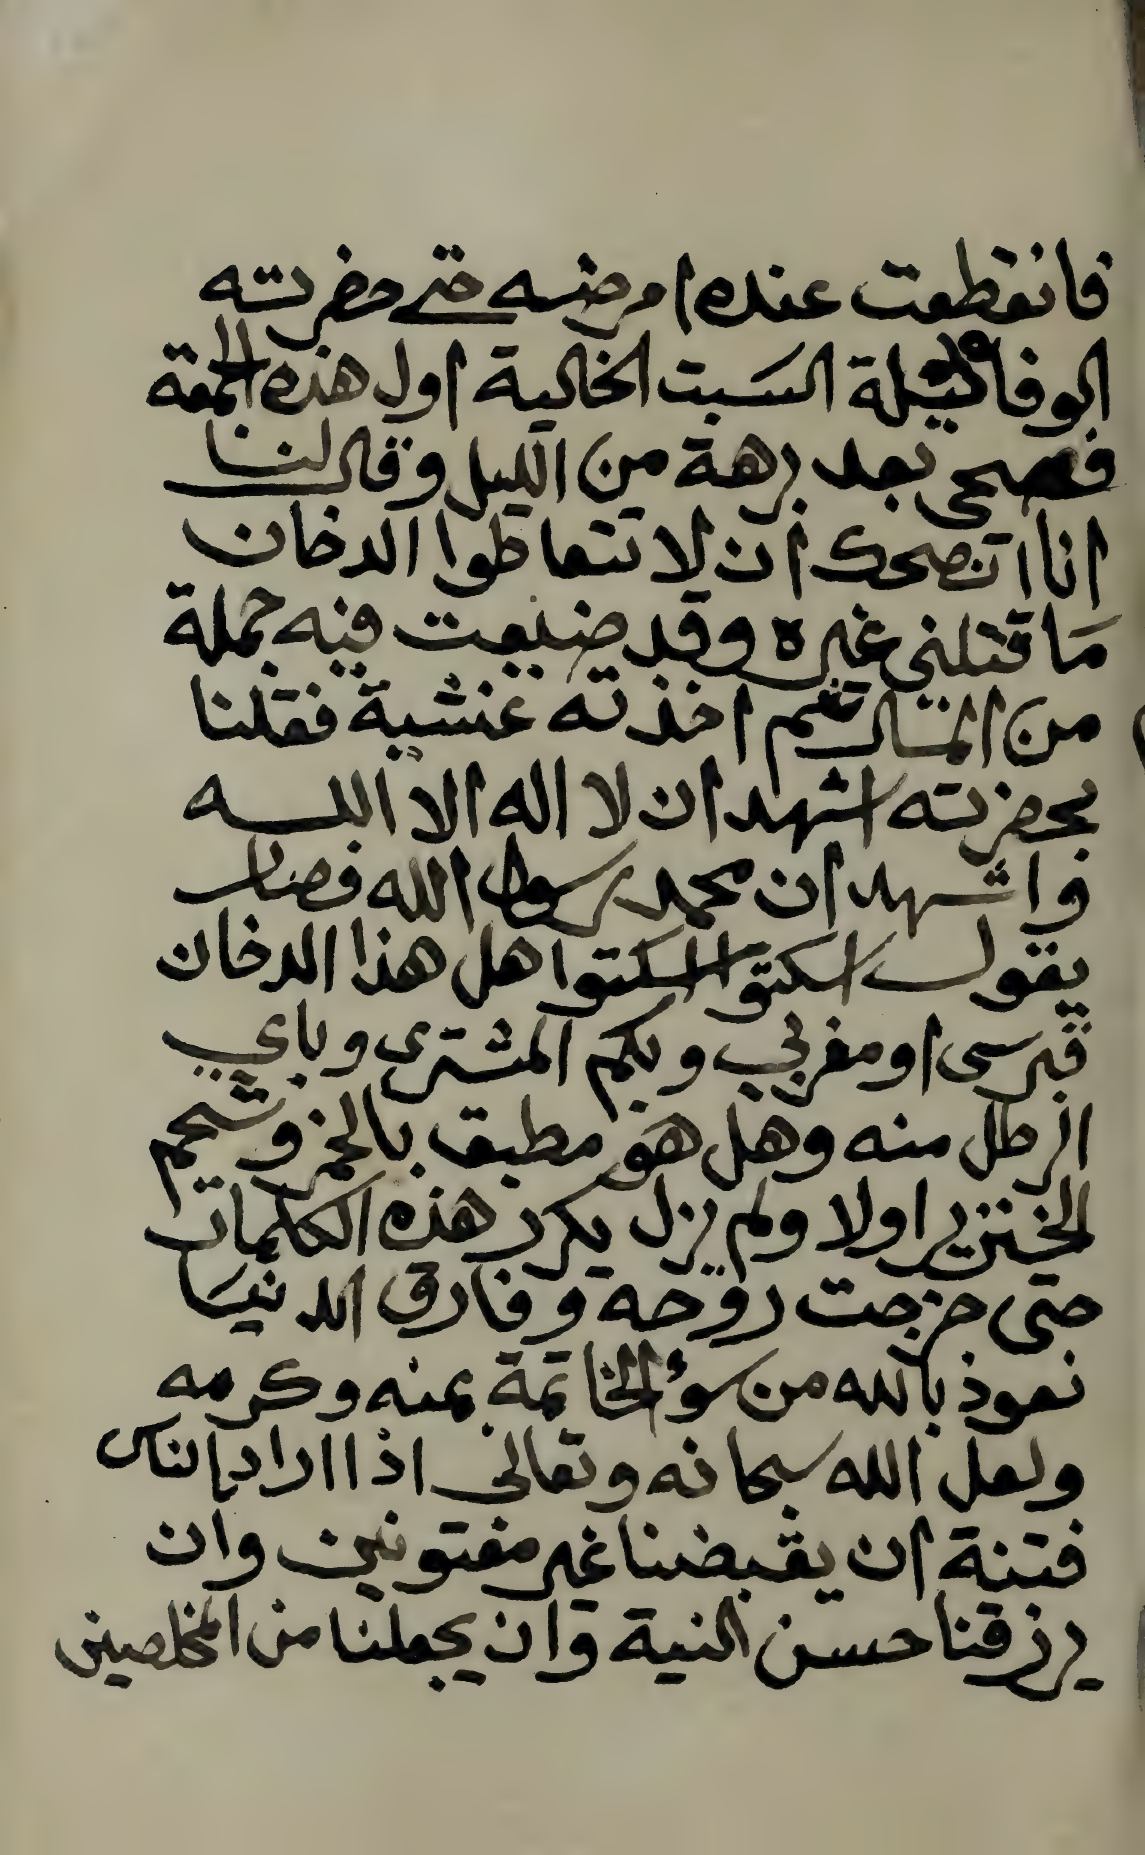 فانقطعت عنده امرضه حتى حضرته
الوفاة ليلة السبت الخالية اول هذه الجمعة
فصحى بعد برهة من الليل وقال لنا
انا انصحك ان لا تتعاطوا الدخان
ما قتلني غيره وقد ضيعت فيه جملة
من المال ثم اخذته غشية فقلنا
بحضرته اشهد ان لا اله الا الله
واشهد ان محمد رسول الله فصار
يقول اسكتوا اسكتوا هل هذا الدخان
قبرسى او مغربي وبكم المشترى وباي
الرطل منه وهل هو مطبق بالخمر وشحم
الخنزير اولا ولم يزل يكرر هذه الكلمات
حتى خرجت روحه وفارق الدنيا
نعوذ بالله من سوء الخاتمة بمنه وكرمه
ولعل الله سبحانه وتعالى اذا اراد بالناس
فتنة ان يقبضنا غير مفتونين وان
يرزقنا حسن النية وان يجعلنا من المخلصين